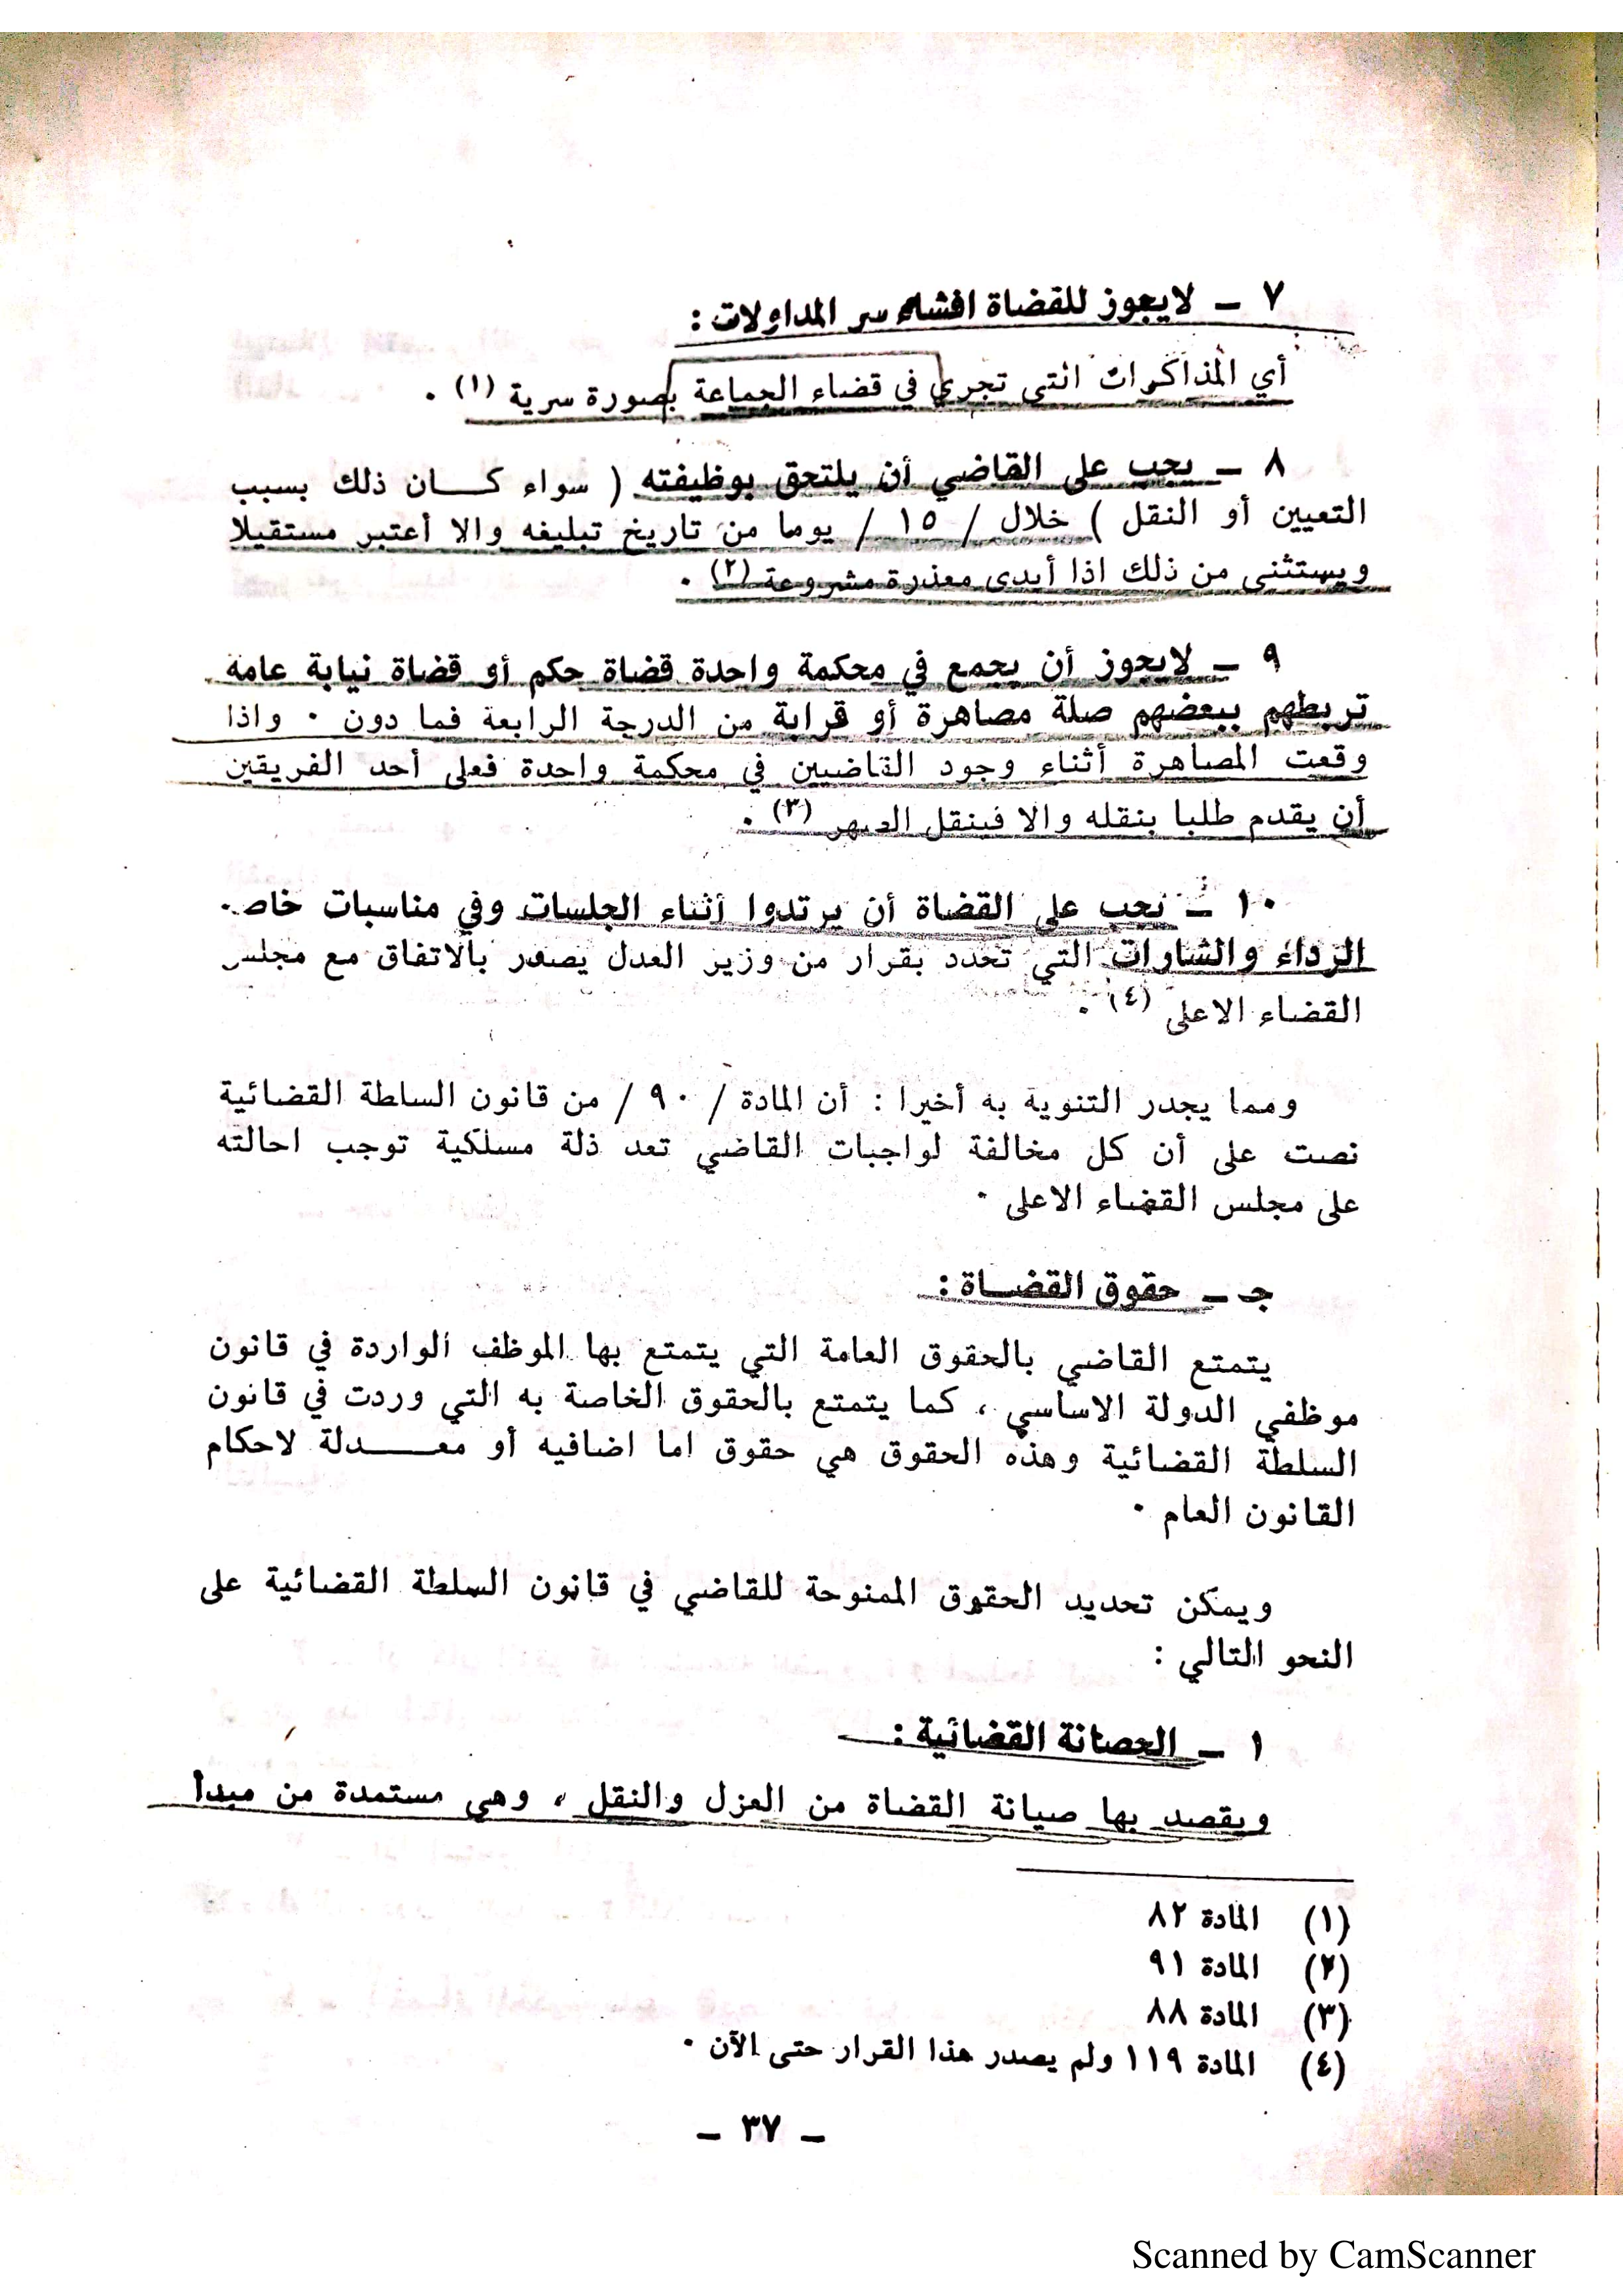 ٧ ــ لايجوز للقضاة افشاء سر المداولات :
أي المذاكرات التي تجري في قضاء الجماعة بصورة سرية (١) ٠
٨ ــ يجب على القاضي أن يلتحق بوظيفته ( سواء كـــان ذلك بسبب
التعيين أو النقل ) خلال / ١٥ / يوما من تاريخ تبليغه والا أعتبر مستقيلا
ويستثنى من ذلك اذا أبدى معذرة مشروعة (٢) ٠
٩ ــ لايجوز أن يجمع في محكمة واحدة قضاة حكم أو قضاة نيابة عامة
تربطهم ببعضهم صلة مصاهرة أو قرابة من الدرجة الرابعة فما دون ٠ واذا
وقعت المصاهرة أثناء وجود القاضيين في محكمة واحدة فعلى أحد الفريقين
أن يقدم طلبا بنقله والا فينقل الصهر (٣) ٠
١٠ ــ يجب على القضاة أن يرتدوا أثناء الجلسات وفي مناسبات خاصة
الرداء والشارات التي تحدد بقرار من وزير العدل يصدر بالاتفاق مع مجلس
القضاء الاعلى (٤) ٠
ومما يجدر التنوية به أخيرا : أن المادة / ٩٠ / من قانون السلطة القضائية
نصت على أن كل مخالفة لواجبات القاضي تعد ذلة مسلكية توجب احالته
على مجلس القضاء الاعلى ٠
جـ ــ حقوق القضــاة :
يتمتع القاضي بالحقوق العامة التي يتمتع بها الموظف الواردة في قانون
موظفي الدولة الاساسي ، كما يتمتع بالحقوق الخاصة به التي وردت في قانون
السلطة القضائية وهذه الحقوق هي حقوق اما اضافيه أو معـــدلة لاحكام
القانون العام ٠
ويمكن تحديد الحقوق الممنوحة للقاضي في قانون السلطة القضائية على
النحو التالي :
١ ــ الحصانة القضائية :
ويقصد بها صيانة القضاة من العزل والنقل ، وهي مستمدة من مبدأ
(١) المادة ٨٢
(٢) المادة ٩١
(٣) المادة ٨٨
(٤) المادة ١١٩ ولم يصدر هذا القرار حتى الآن ٠
ــ ٣٧ ــ
Scanned by CamScanner